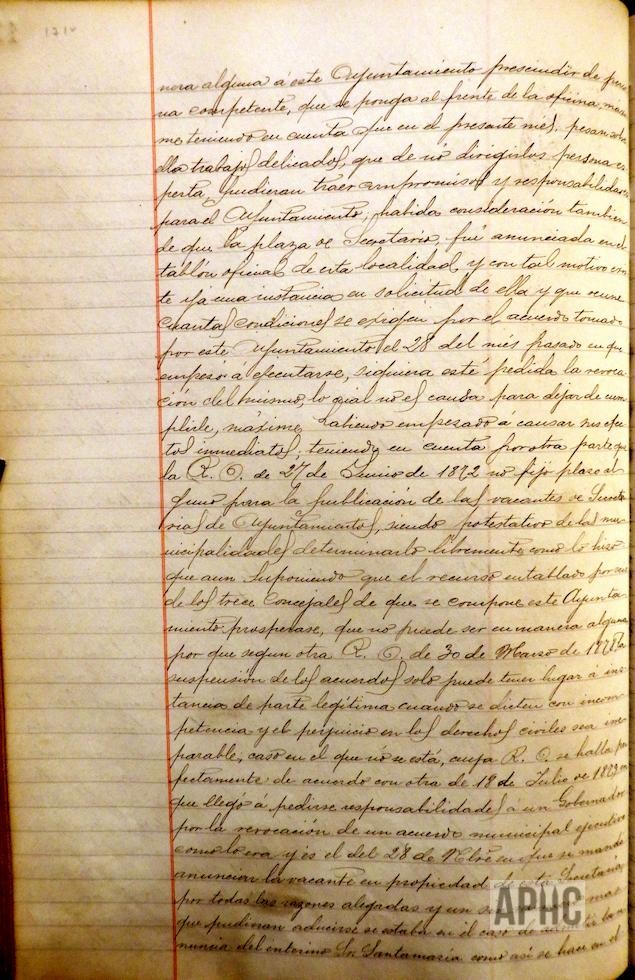 nera alguna á este Ayuntamiento prescindir de perso
na competente, que se ponga al frente de la oficina, máxi
me teniendo en cuenta que en el presente mes, pesan sobre
ella trabajos delicados, que de nó dirigirlos persona ex
perta, pudieran traer compromisos y responsabilidades
para el Ayuntamiento, habida consideración tambien
de que la plaza de Secretario fué anunciada en el
tablón oficial de esta localidad, y con tal motivo exis
te ya una instancia en solicitud de ella y que reune
cuantas condiciones se exigen por el acuerdo tomado
por este Ayuntamiento el 28 del més pasado en que
empesó á ejecutarse, siquiera esté pedida la revoca
ción del mismo, lo qual no es causa para dejar de cum
plirle, máxime habiendo empesado á causar sus efec
tos inmediatos; teniendo en cuenta por otra parte que
la R. O. de 27 de Junio de 1872 no fijo plaso al
guno para la publicación de las vacantes de Secreta
rias de Ayuntamientos, siendo potestativo de las mu
nicipalidades determinarlo libremente como lo hizo
que aun suponiendo que el recurso entablado por
de los trece Concejales de que se compone este Ayunta
miento prosperase, que no puede ser en manera alguna
por que segun otra R. O. de 30 de Marzo de la
suspensión de los acuerdos solo puede tener lugar á ins
tancia de parte legítima cuando se dicten con incom
petencia y el perjuicio en los derechos civiles sea irre
parable, caso en el que nó se está, cuya R. O. se halla per
fectamente de acuerdo con otra de 18 de Julio de
que llegó á pedirse responsabilidades á un Gobernador
por la revocación de un acuerdo municipal ejecutivo
como lo era y és el del 28 de en que se mandó
anunciar la vacante en propiedad de esta Secretaría
por todas las razones alegadas y un sin mas
que pudieran aducirse se estaba en el caso de la re
nuncia del interino Sr. Santamaría como así se hace en el
1710
APHC